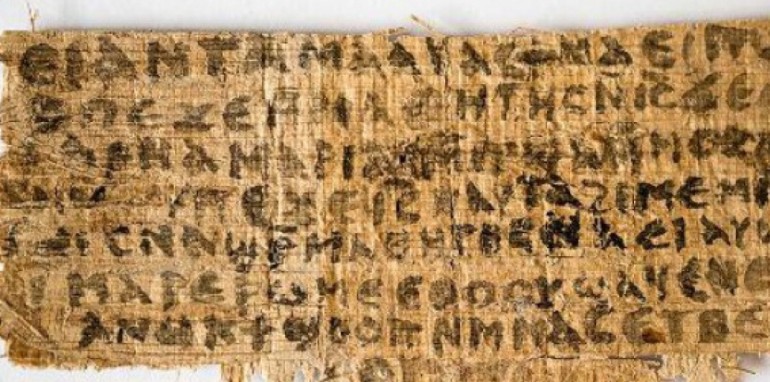 ⲉⲓ ⲁⲛ ⲧⲁⲙⲁⲁⲩ ⲁⲥϯ ⲛⲁⲉⲓ
ⲡⲉϫⲉ ⲙⲙⲁⲑⲏⲧⲏⲥ ⲛⲓⲥ ϫⲉ
ⲁⲣⲛⲁ ⲙⲁⲣⲓⲁⲙ ⲙⲡϣⲁ ⲙⲙⲟⲥ
ⲡⲉϫⲉ ⲓⲥ ⲛⲁⲩ ⲧⲁϩⲓⲙⲉ ⲙⲛ
ⲥⲛⲁϣⲣⲙⲁⲑⲏⲧⲏⲥ ⲛⲁⲉⲓ ⲁⲩⲱ
ⲓ ⲙⲁⲣⲉⲣⲱⲙⲉ ⲉⲑⲟⲟⲩ ϣⲁϥⲉ ⲛⲉ
ⲁⲛⲟⲕ ϯϣⲟⲟⲡ ⲛⲙⲙⲁⲥ ⲉⲧⲃⲉ